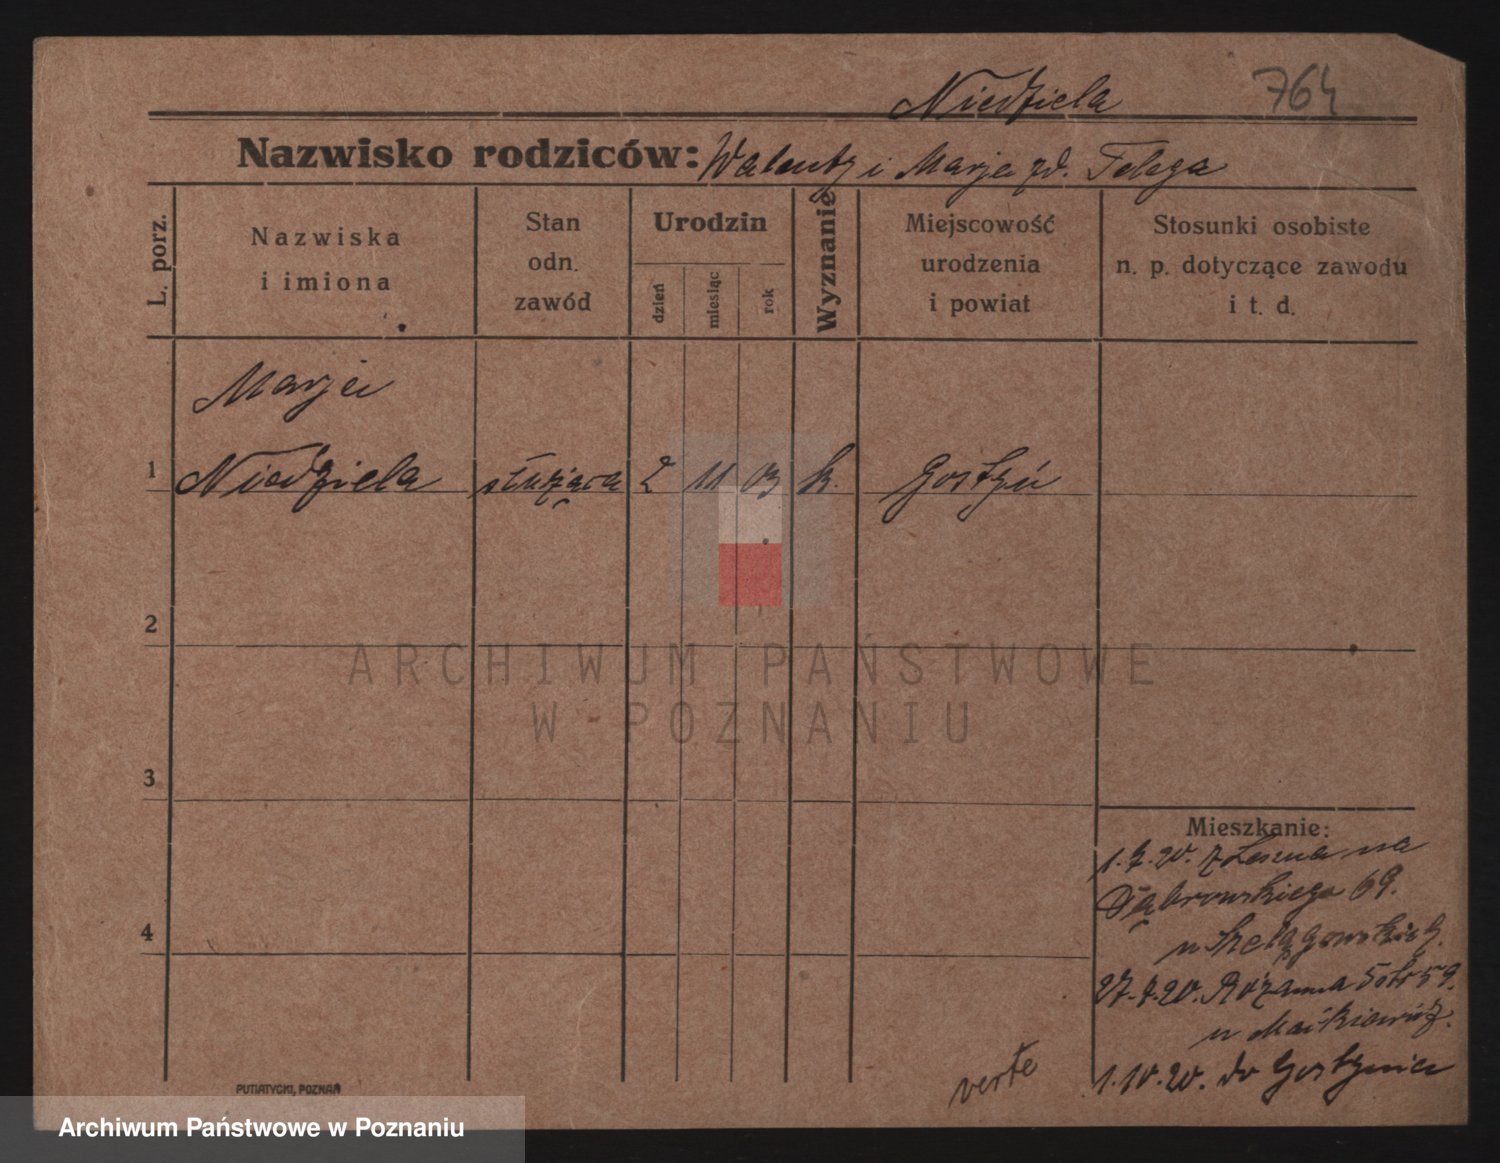 Niedziela 764
Nazwisko rodziców: Walenty i Marja zd. Telega
L. porz.
Nazwiska
i imiona
Stan
odn.
zawód
Urodzin
dzień
miesiąc
rok
Wyznanie
Miejscowość
urodzenia
i powiat
Stosunki osobiste
n. p. dotyczące zawodu
i t. d.
Marja
1 Niedziela służąca 2 11 03 k. Gostyń
2
ARCHIWUM PAŃSTWOWE
W POZNANIU
3
Mieszkanie:
1.7.20. z Leszna na
Dąbrowskiego 69.
4
u
27.7.20. Różanna 5
u
1.10.20. do Gostynia
verte
PUTIATYCKI, POZNAŃ
Archiwum Państwowe w Poznaniu